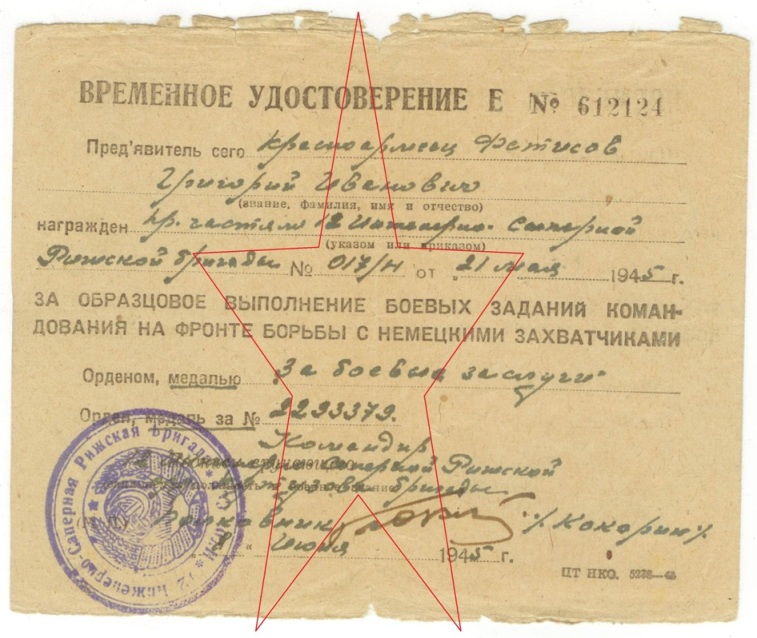 ВРЕМЕННОЕ УДОСТОВЕРЕНИЕ Е № 612124
Пред'явитель сего красноармеец Фатисов
Григорий Иванович
(звание, фамилия, имя и отчество)
награжден пр. частям 12 Инженерно-Саперной
(указом или приказом)
Рижской бригады № 017/н от "21" мая 1945 г.
ЗА ОБРАЗЦОВОЕ ВЫПОЛНЕНИЕ БОЕВЫХ ЗАДАНИЙ КОМАН-
ДОВАНИЯ НА ФРОНТЕ БОРЬБЫ С НЕМЕЦКИМИ ЗАХВАТЧИКАМИ
Орденом, медалью "За боевые заслуги"
Орден, медаль за № 2293379.
Командир
12 Инженерно-Саперной Рижской
бригады
Полковник /Кокорин/
(М. П.)
" " Июня 1945 г.
ЦТ НКО. 5238—45
12 Инженерно-Саперная Рижская Бригада